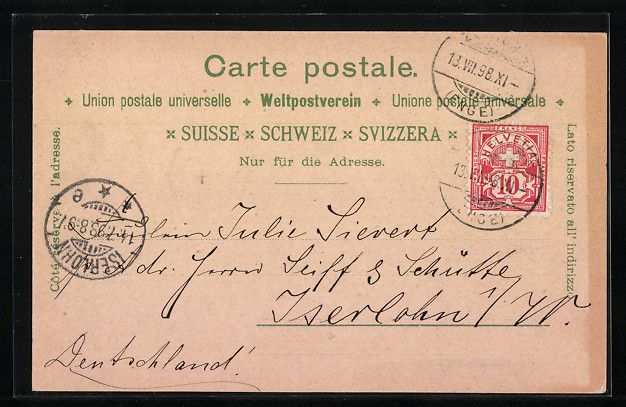 Carte postale.
Union postale universelle Weltpostverein Unione postale universale
× SUISSE × SCHWEIZ × SVIZZERA ×
Nur für die Adresse.
Côté réservé à l'adresse.
Lato riservato all' indirizzo
13.VII.98.XI-
(EIGE)
HELVETIA
FRANCO
10
13.VII.98
ISERLOHN
14.7.98.8-9V.
1 * e
Fräulein Julie Sievert
dr. Herrn Seiff & Schütte
Iserlohn i/W.
Deutschland!